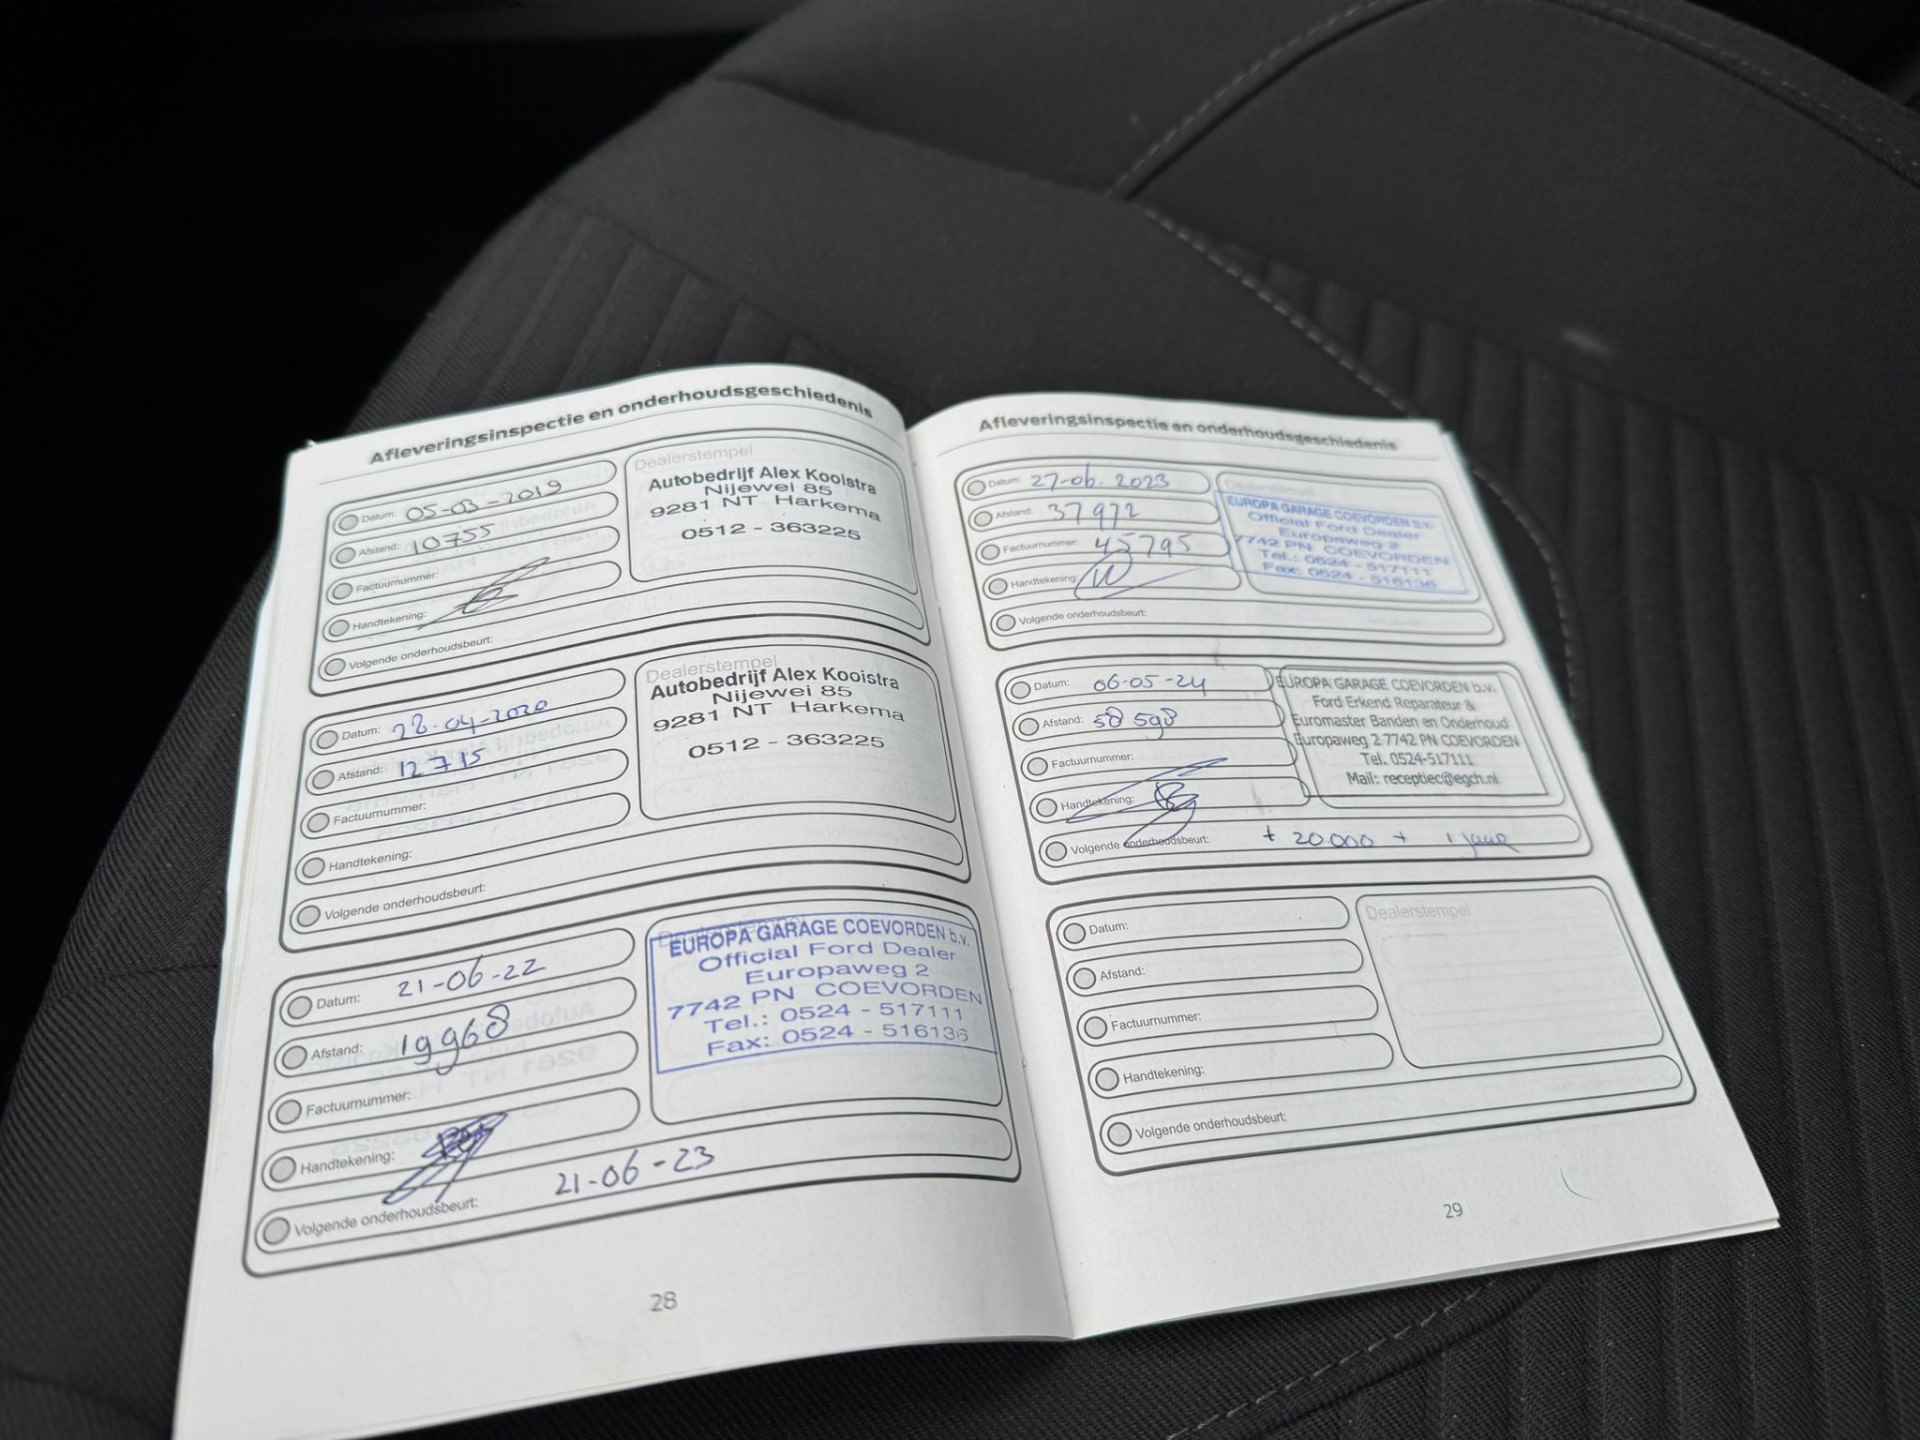 Afleveringsinspectie en onderhoudsgeschiedenis
Datum: 05-03-2019
Afstand: 10755
Factuurnummer:
Handtekening:
Volgende onderhoudsbeurt:
Dealerstempel
Autobedrijf Alex Kooistra
Nijewei 85
9281 NT Harkema
0512 - 363225
Datum: 28-04-2020
Afstand: 12715
Factuurnummer:
Handtekening:
Volgende onderhoudsbeurt:
Dealerstempel
Autobedrijf Alex Kooistra
Nijewei 85
9281 NT Harkema
0512 - 363225
Datum: 21-06-22
Afstand: 19968
Factuurnummer:
Handtekening:
Volgende onderhoudsbeurt: 21-06-23
EUROPA GARAGE COEVORDEN b.v.
Official Ford Dealer
Europaweg 2
7742 PN COEVORDEN
Tel.: 0524 - 517111
Fax: 0524 - 516136
28
Afleveringsinspectie en onderhoudsgeschiedenis
Datum: 27-06-2023
Afstand: 37972
Factuurnummer: 45795
Handtekening:
Volgende onderhoudsbeurt:
EUROPA GARAGE COEVORDEN b.v.
Official Ford Dealer
Europaweg 2
7742 PN COEVORDEN
Tel.: 0524 - 517111
Fax: 0524 - 516136
Datum: 06-05-24
Afstand: 58598
Factuurnummer:
Handtekening:
Volgende onderhoudsbeurt: + 20.000 + 1 jaar
EUROPA GARAGE COEVORDEN b.v.
Ford Erkend Reparateur &
Euromaster Banden en Onderhoud
Europaweg 2 7742 PN COEVORDEN
Tel. 0524-517111
Mail: receptiec@egch.nl
Datum:
Afstand:
Factuurnummer:
Handtekening:
Volgende onderhoudsbeurt:
Dealerstempel
29